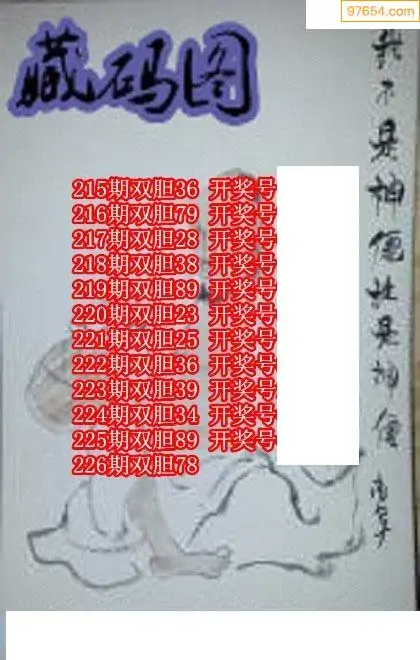 97654.com
藏码图
我不是神仙壮是神仙
215期双胆36 开奖号
216期双胆79 开奖号
217期双胆28 开奖号
218期双胆38 开奖号
219期双胆89 开奖号
220期双胆23 开奖号
221期双胆25 开奖号
222期双胆36 开奖号
223期双胆39 开奖号
224期双胆34 开奖号
225期双胆89 开奖号
226期双胆78